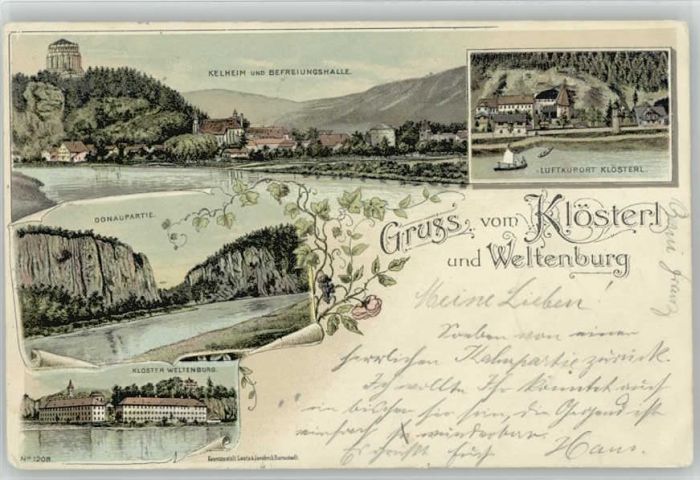 KELHEIM UND BEFREIUNGSHALLE.
LUFTKURORT KLÖSTERL.
DONAUPARTIE.
Gruss vom Klösterl
und Weltenburg
KLOSTER WELTENBURG.
No 1208
Meine Lieben!
Soeben von einer
herrlichen Kahnpartie zurück.
Ich wollte Ihr könntet auch
ein bischen hier sein, die Gegend ist
einfach wunderbar.
Es grüßt Euch Hans.